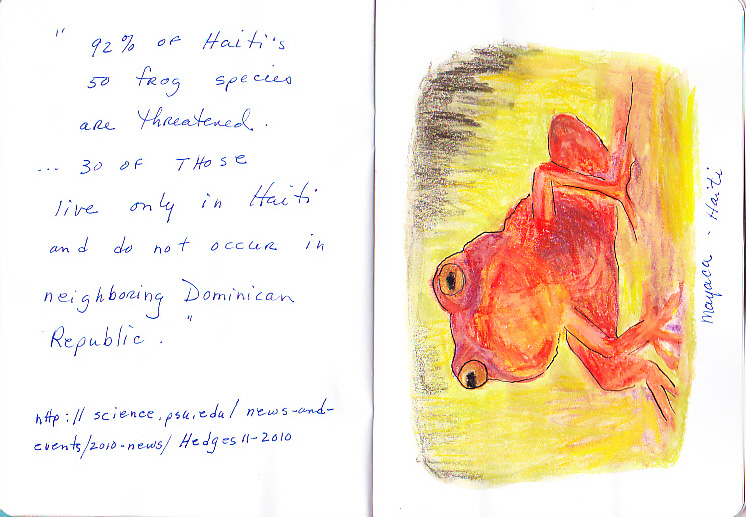 " 92% OF Haiti's
50 frog species
are threatened.
... 30 OF THOSE
live only in Haiti
and do not occur in
neighboring Dominican
Republic. "
http://science.psu.edu/news-and-
events/2010-news/Hedges11-2010
Mayaca - Haiti